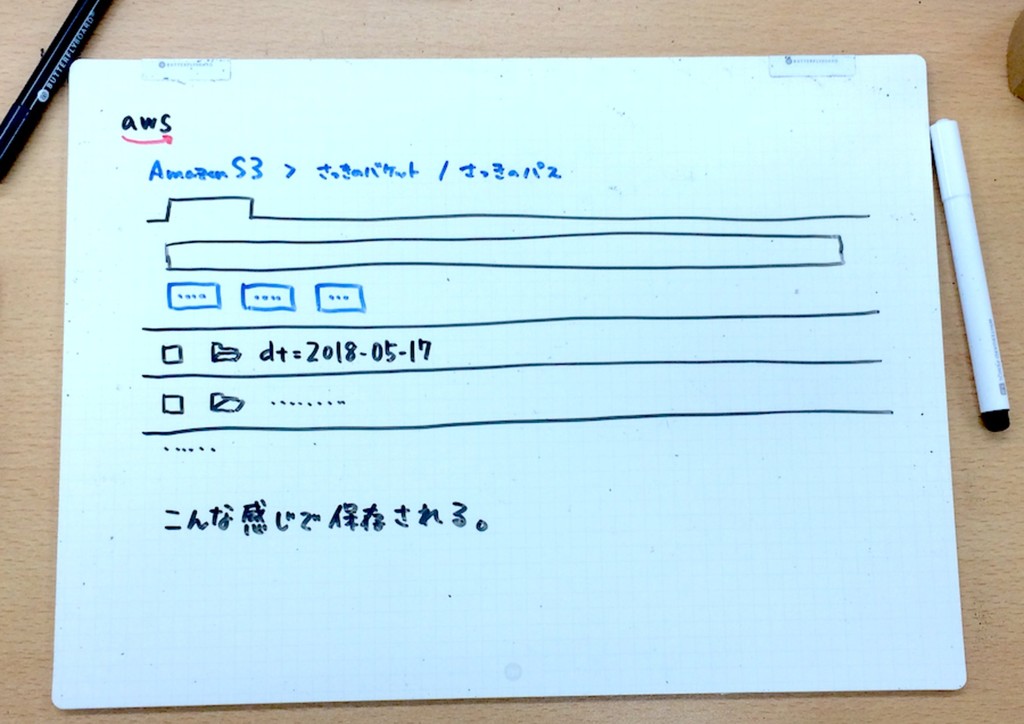 BUTTERFLYBOARD
BUTTERFLYBOARD
BUTTERFLYBOARD
aws
Amazon S3 > さっきのバケット / さっきのパス
....
....
...
dt=2018-05-17
.........
......
こんな感じで保存される。